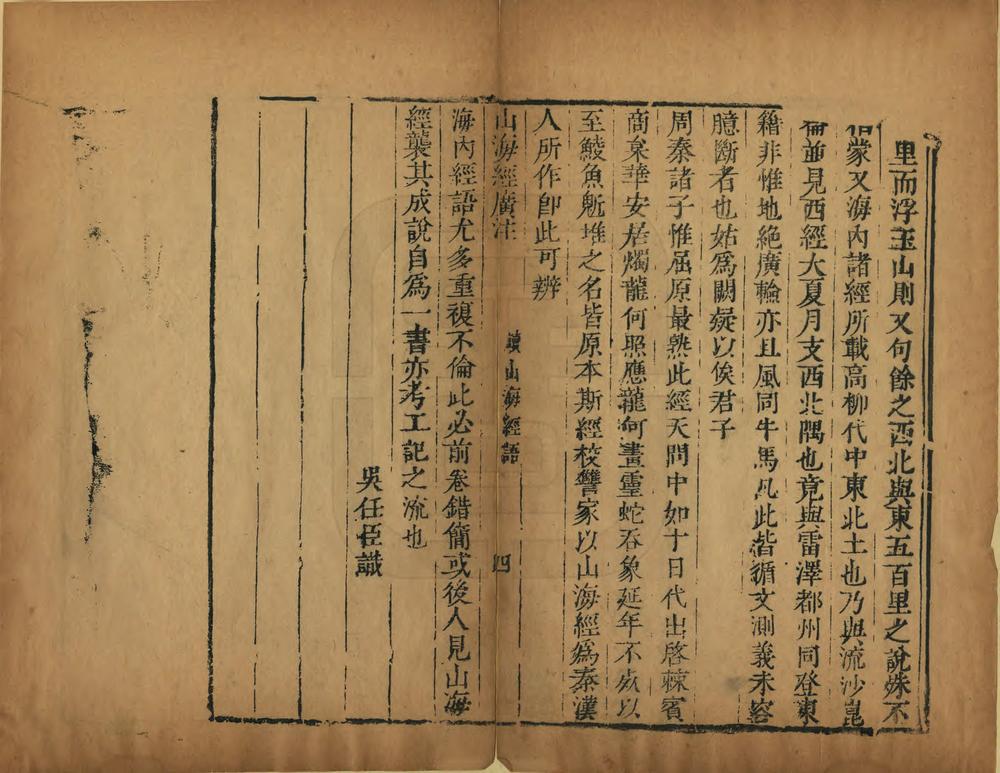 里而浮玉山則又句餘之西北與東五百里之說殊不
相蒙又海內諸經所載高柳代中東北土也乃與流沙崑
崙並見西經大夏月支西北隅也竟與雷澤都州同登東
籍非惟地絶廣輪亦且風同牛馬凡此皆循文測義未容
臆斷者也姑爲闕疑以俟君子
周秦諸子惟屈原最熟此經天問中如十日代出啓棘賓
商枲華安居燭龍何照應龍何畫靈蛇吞象延年不死以
至鯪魚鬿堆之名皆原本斯經校讐家以山海經爲秦漢
人所作卽此可辨
山海經廣注 讀山海經語 四
海內經語尤多重複不倫此必前卷錯簡或後人見山海
經襲其成說自爲一書亦考工記之流也
吳任臣識